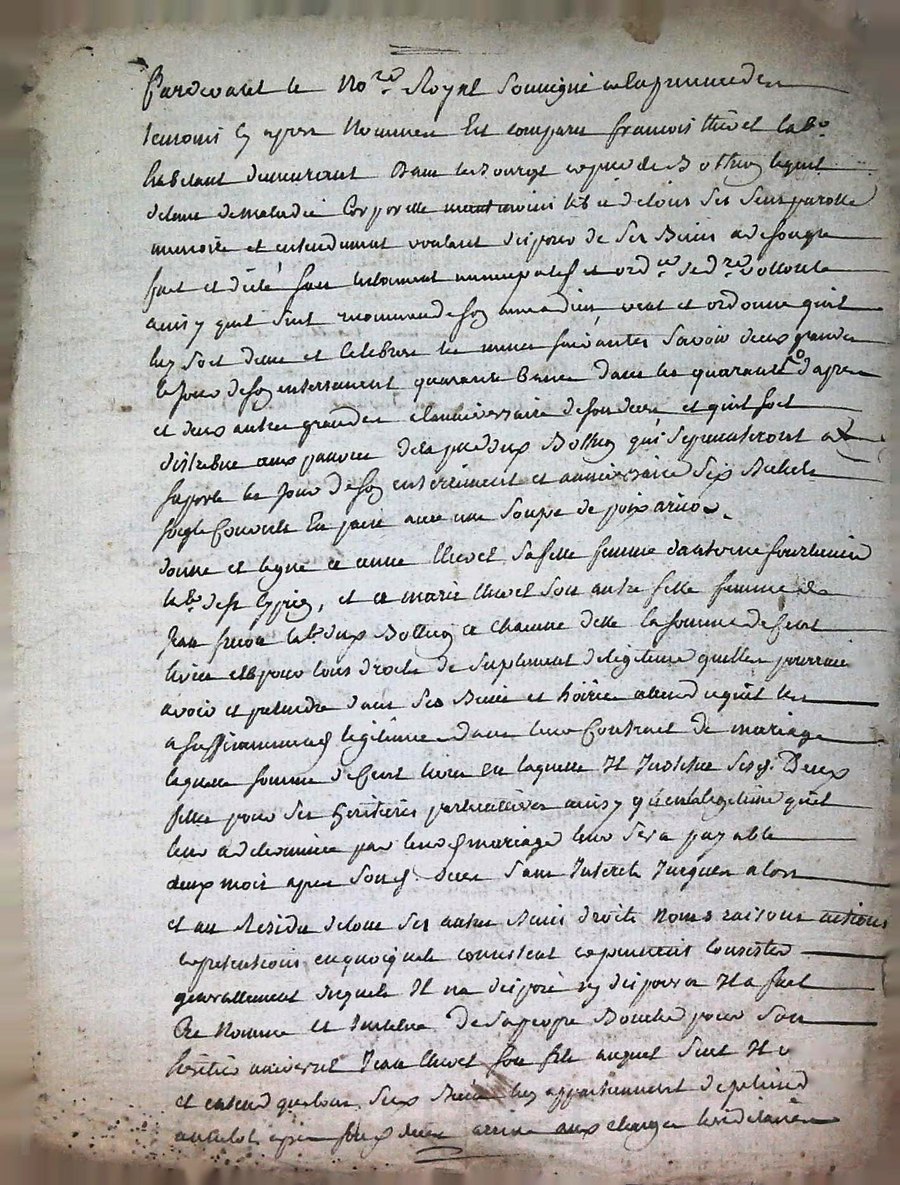 Pardevant le No.re Royal Soussigné en la presence des
temoins cy apres Nommes Est comparu francois thivel labr
habitant demeurant Dans le Bourg et psse de Bothieu lequel
detenu de maladie Corporelle neantmoins libre de tous ses Sens parolle
memoire et entendement voulant disposer de ses Biens a de son gre
fait et dicté son testament nuncupatif et ord.re de d.re vollonté
ainsy quil Suit recommande son ame a dieu veut et ordonne quil
luy soit ditte et celebree les messes suivantes Savoir deux grandes
le Jour de son enterrement quarante Basses dans les quarante Jo. dapres
et deux autres grandes a lanniversaire de son deces et quil soit
distribue aux pauvres de la psse dud Bothieu qui se presenteront a
sa porte le Jour de son enterrement et anniversaire Six Bichets
seigle Convertis En pain avec une Soupe de pois a un
donne et legue a anne thivel Sa fille femme dantoine fourtunier
labr de st Cyprien, et a marie thivel Son autre fille femme de
Jean labr dud Bothieu a Chacune delle la somme de Cent
livres et ce pour tous droits de Suplement de legitime quelles pourraient
avoir et pretendre dans Ses Biens et hoirie attendu quil les
a suffisamment legitimées dans leur Contract de mariage
laquelle somme de Cent livres En laquelle Il Institue Sesd. Deux
filles pour Ses heritieres particulieres ainsy quen la legitime quil
leur a destinnée par leurd mariage leur Sera payable
deux mois apres Sond. deces Sans Interets Jusques alors
et au Residu de tous Ses autres Biens droits Noms raisons actions
et pretentions en quoi quils consistent et puissent Consister
generallement desquels Il na disposé ny disposera Il a fait
Cree Nomme et Institue de sa propre Bouche pour Son
heritier universel Jean thivel son fils auquel Sieur Il
et entend que tous Sesd Biens luy appartiennent de plein
autelot apres sond deces aux charges hereditaires